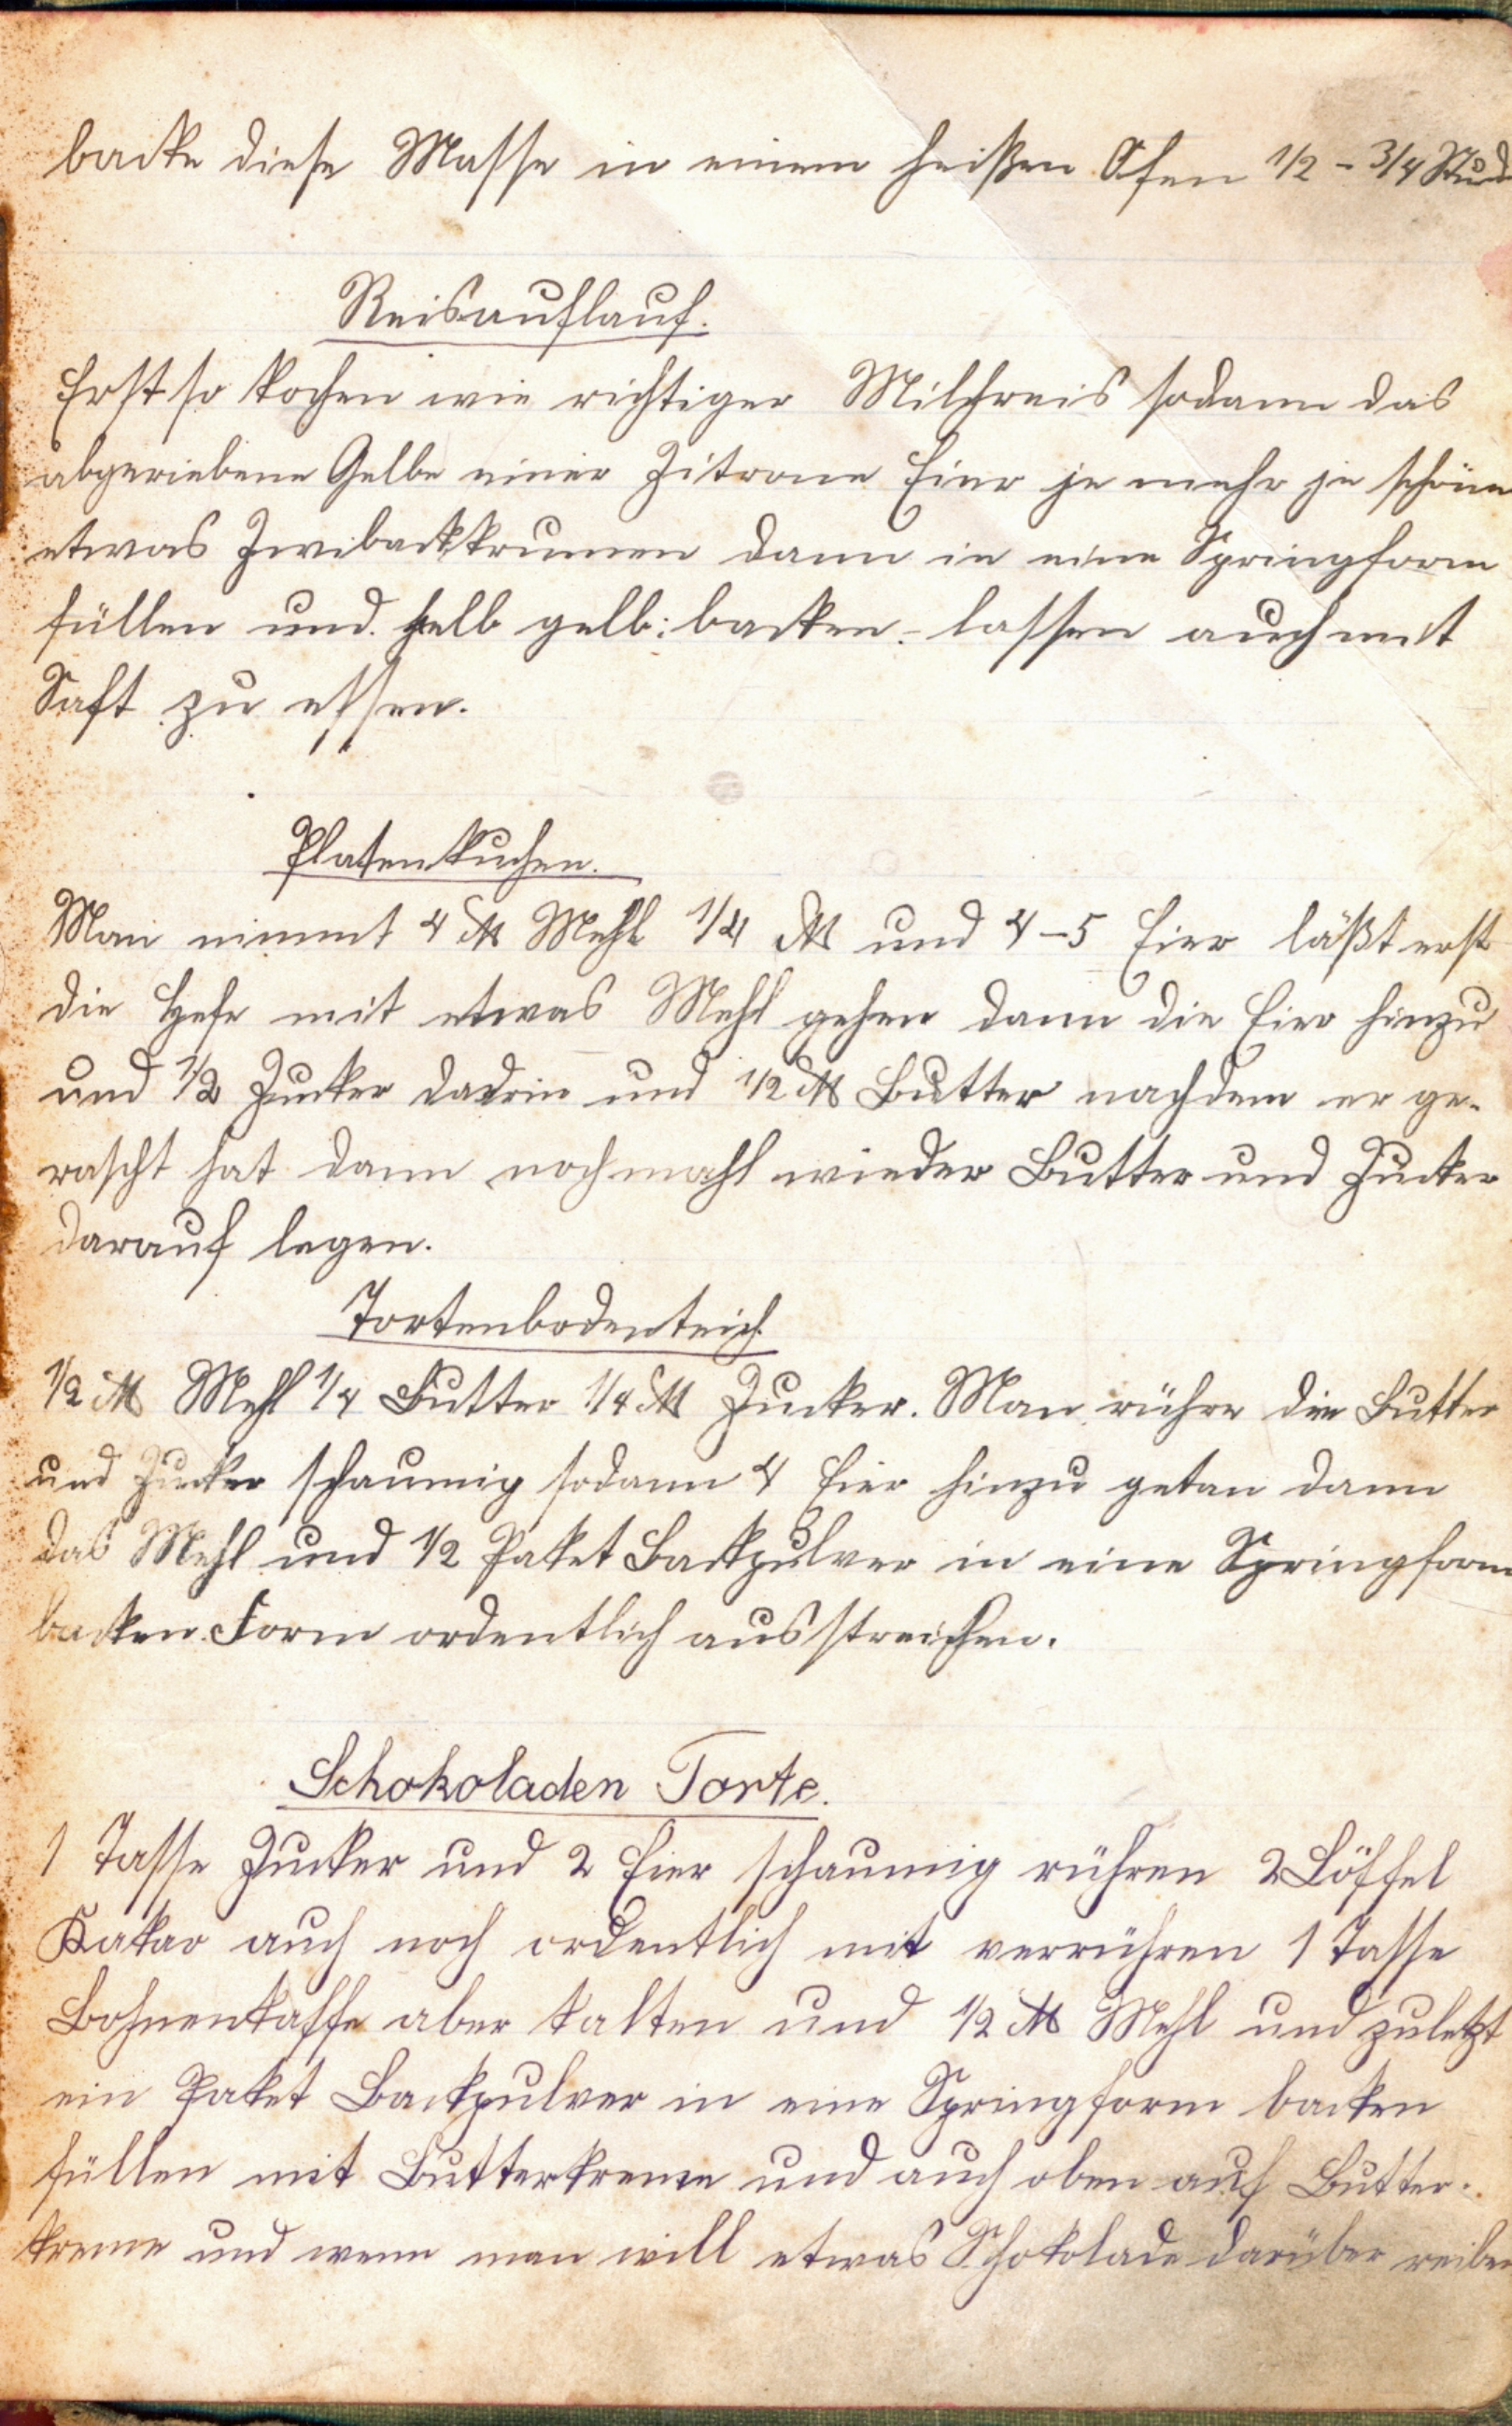 backe diese Masse in einem heißen Ofen 1/2 - 3/4 Stund
Reisauflauf.
Erst so kochen wie richtiger Milchreis sodann das
abgeriebene Gelbe einer Zitrone Eier je mehr je schöner
etwas Zwibackkrumen dann in eine Springform
füllen und helb gelb: backen - lassen auch mit
Saft zu essen.
Platenkuchen.
Man nimmt 4 ℔ Mehl 1/4 ℔ und 4-5 Eier läßt erst
die Hefe mit etwas Mehl gehen dann die Eier hinzu
und 1/2 Zucker dadrin und 1/2 ℔ Butter nachdem er ge-
rascht hat dann nochmahl wieder Butter und Zucker
darauf legen.
Tortenbodenteich
1/2 ℔ Mehl 1/4 Butter 1/4 ℔ Zucker. Man rühre die Butter
und Zucker schaumig sodann 4 Eier hinzu getan dann
das Mehl und 1/2 Paket Backpulver in eine Springform
backen. Form ordentlich ausstreichen.
Schokoladen Torte.
1 Tasse Zucker und 2 Eier schaumig rühren 2 Löffel
Kakao auch noch ordentlich mit verrühren 1 Tasse
Bohnenkaffe aber kalten und 1/2 ℔ Mehl und zuletzt
ein Paket Backpulver in eine Springform backen
füllen mit Butterkreme und auch oben auf Butter-
kreme und wenn man will etwas Schokolade darüber reiben